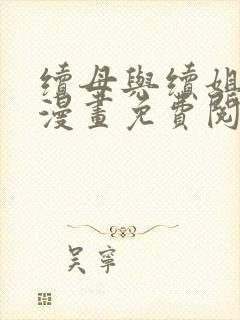 續母與續姐
漫畫免費閱
吴寧